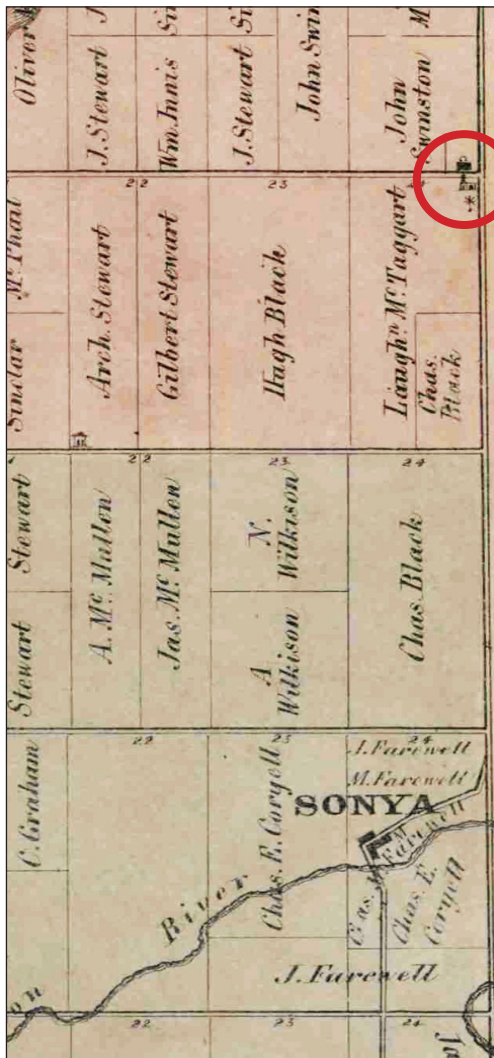 Oliver
J. Stewart
Wm. Innis
J. Stewart
John Swin
John
Swinston
M
22
23
Mc Phail
Sinclar
Arch. Stewart
Gilbert Stewart
Hugh Black
Laughn. Mc Taggart
Chas.
Black
22
23
24
Stewart
Stewart
A. Mc Mullen
Jas. Mc Mullen
N.
Wilkison
A
Wilkison
Chas. Black
22
23
24
C. Graham
Chas. E. Coryell
J. Farewell
M. Farewell
SONYA
M
Farewell
River
Chas. E.
Coryell
J. Farewell
on
22
23
24